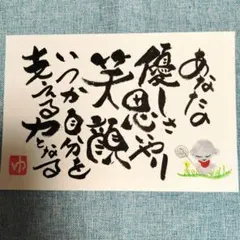 あなたの
優しさ思いやり
笑顔
いつか自分を
支える力となる
ゆ